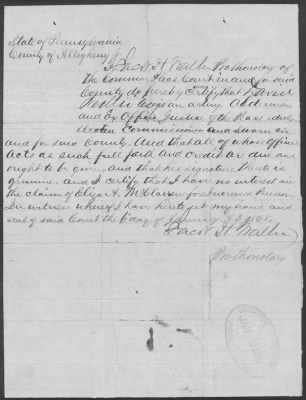 State of Pennsylvania
County of Allegheny
I Jacob H Walter Prothonotary of
The Common Pleas Court in and for said
County do hereby Certify that David
is an acting Alderman
and Ex Officio Justice of the Peace duly
elected Commissioned and sworn in
and for said County. And that all of whose Official
Acts as such full faith and credit are due and
ought to be given, and that his signature thereto is
genuine. and I certify that I have no interest in
the claim of Eliza A. McClaren for Increased Pension
In witness whereof I have hereto set my hand and
seal of said Court the 6 day of January AD 1868.
Jacob H Walter
Prothonotary